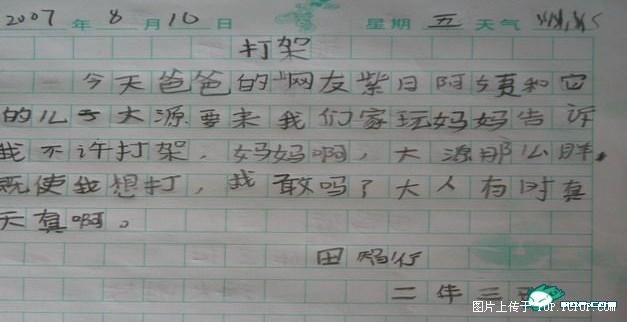 2007 年 8 月 10 日 星期 五 天气
打架
今天爸爸的"网友紫日阿姨和它
的儿子大源要来我们家玩妈妈告诉
我不许打架，妈妈啊，大源那么胖，
既使我想打，我敢吗？大人有时真
天真啊。
田
二年三
图片上传于